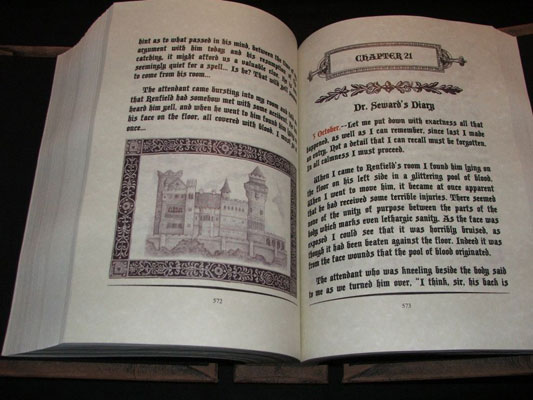 hint as to what passed in his mind, between the
argument with him today and his resumption of
catching, it might afford us a valuable clue. He is
seemingly quiet for a spell... Is he? That wild yell
to come from his room...
The attendant came bursting into my room and
that Renfield had somehow met with some accident. He
heard him yell, and when he went to him found him lying
on his face on the floor, all covered with blood. I must
once...
572
CHAPTER 21
Dr. Seward's Diary
3 October.--Let me put down with exactness all that
happened, as well as I can remember, since last I made
an entry. Not a detail that I can recall must be forgotten.
In all calmness I must proceed.
When I came to Renfield's room I found him lying on
the floor on his left side in a glittering pool of blood.
When I went to move him, it became at once apparent
that he had received some terrible injuries. There seemed
none of the unity of purpose between the parts of the
body which marks even lethargic sanity. As the face was
exposed I could see that it was horribly bruised, as
though it had been beaten against the floor. Indeed it was
from the face wounds that the pool of blood originated.
The attendant who was kneeling beside the body said
to me as we turned him over, "I think, sir, his back is
573